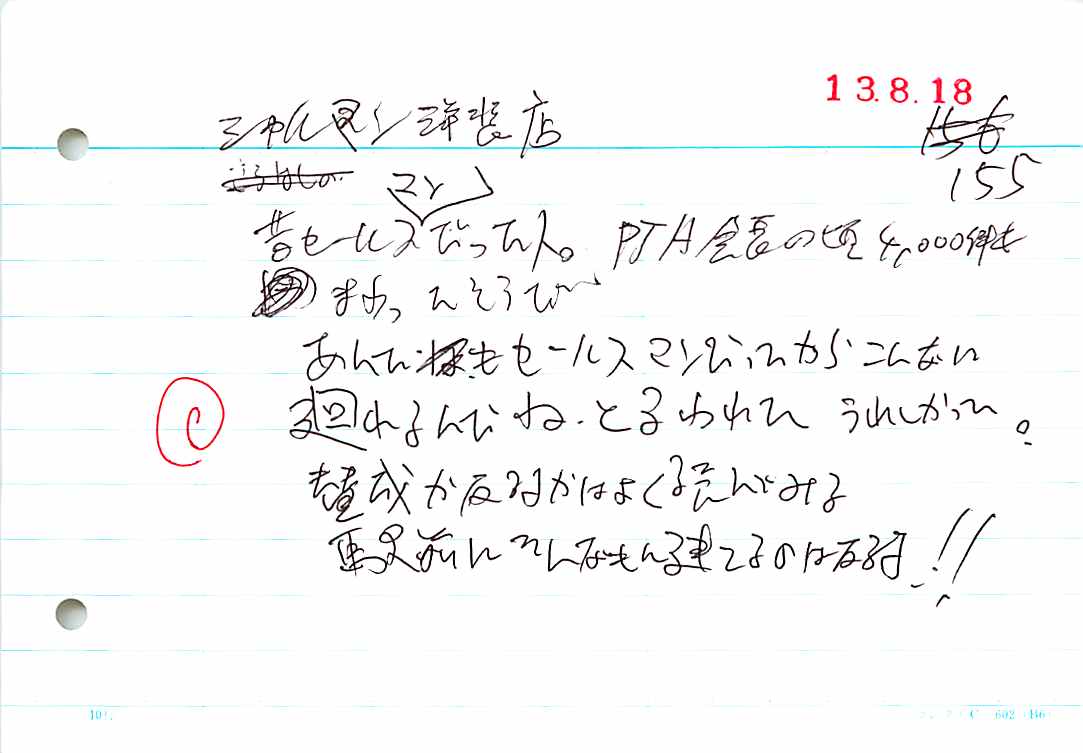 13.8.18
シャルマン洋装店
155
マン
昔セールスだった人。PTA会長の頃4,000軒も
まわったそうだ
あんたも セールスマンだったから こんなに
廻れるんだね。と言われて うれしかった。
C
賛成か反対かはよく読んでみる
駅前にそんなもん建てるのは反対!!